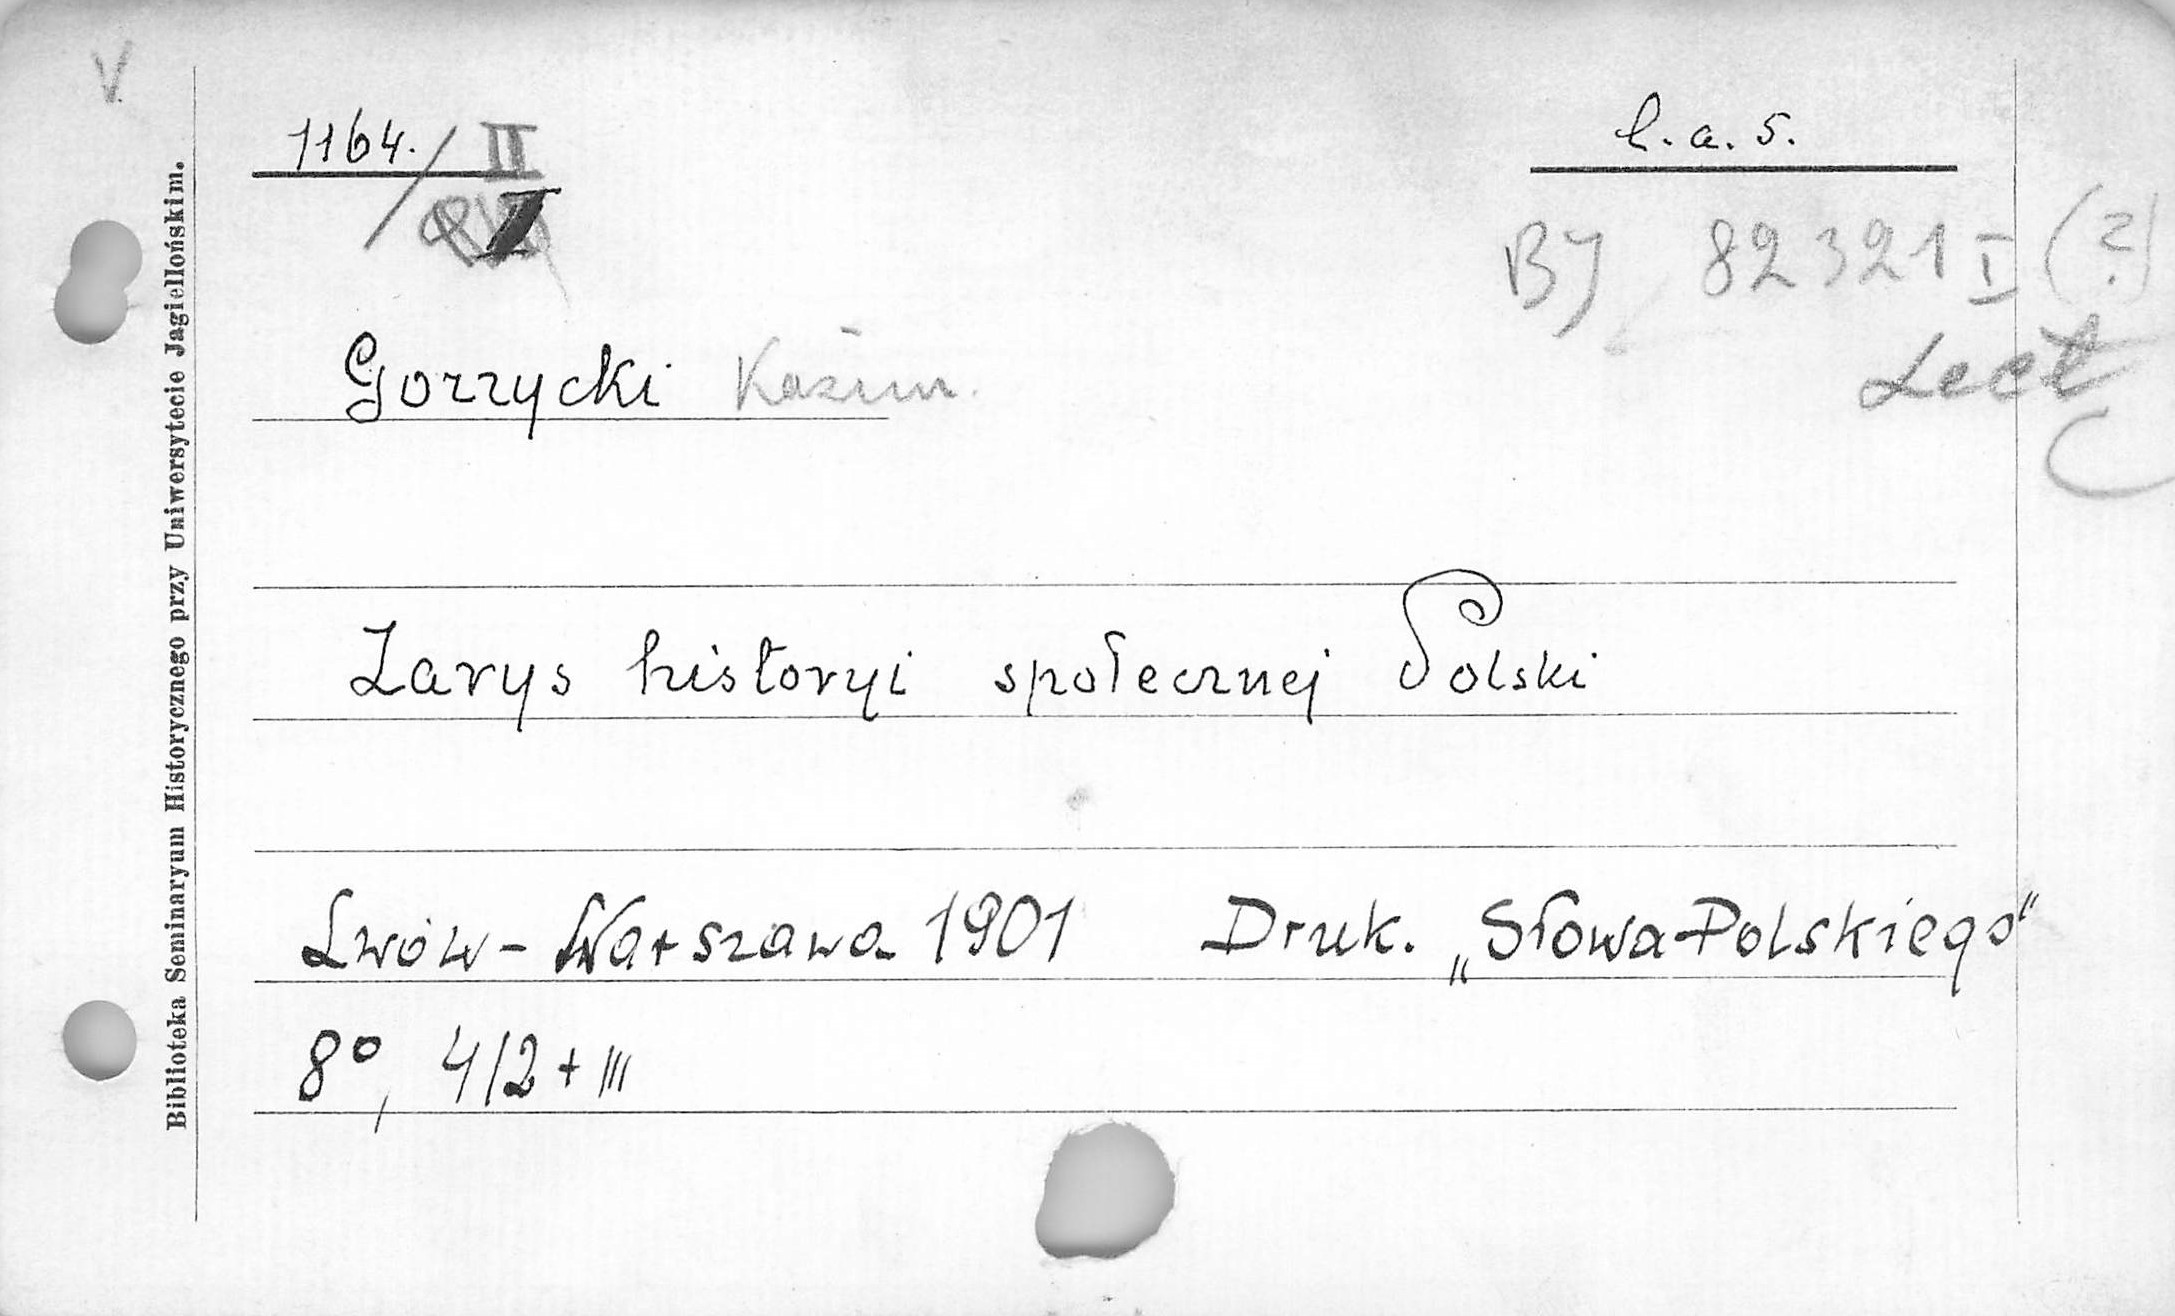 V.
1164./II
l.a.5.
BJ 82321 I (?)
Lect
Gorzycki Kazim.
Zarys historyi społecznej Polski
Lwów - Warszawa 1901 Druk. „Słowa Polskiego“
8°, 412 + III
Biblioteka Seminaryum Historycznego przy Uniwersytecie Jagiellońskim.